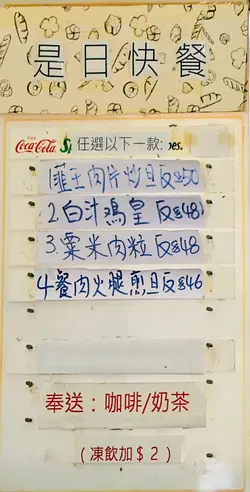 是日快餐
Coca-Cola 任選以下一款:
1.韮王肉片炒旦反$50
2.白汁鸡皇反$48
3.粟米肉粒反$48
4.餐肉火腿煎旦反$46
奉送：咖啡/奶茶
（凍飲加$2）